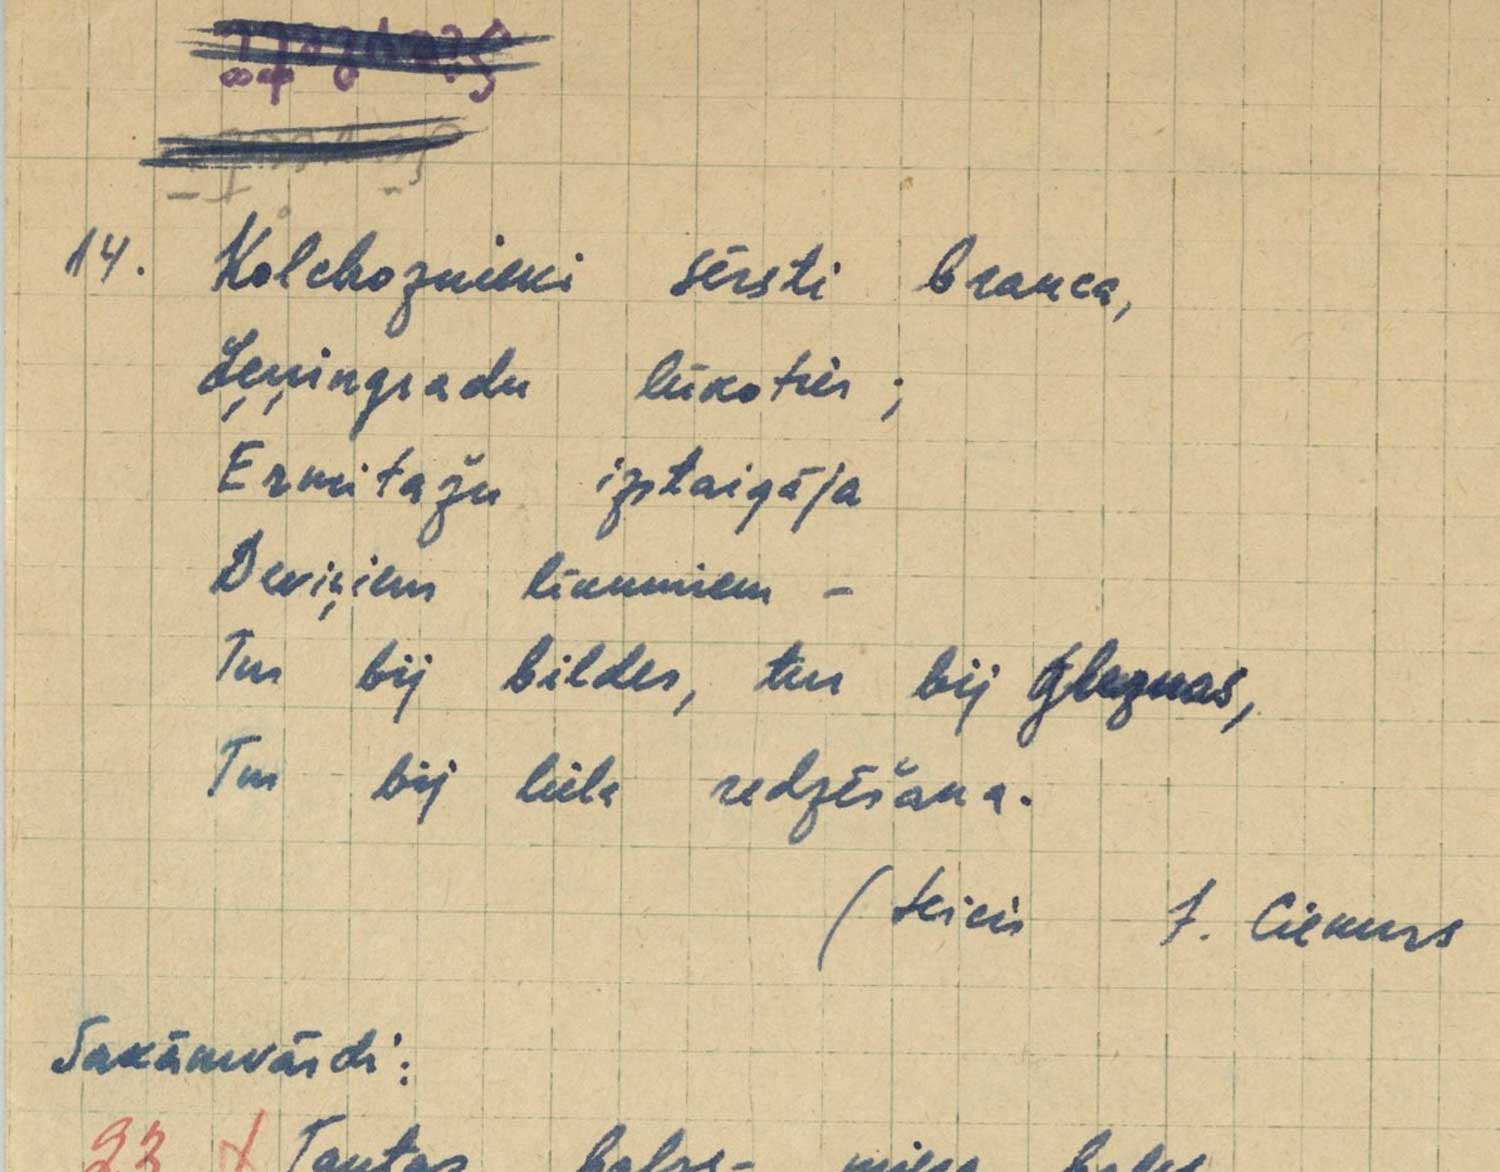 14. Kolchoznieki sērsti brauca,
Ļeņingradu lūkoties;
Ermitažu izstaigāja
Deviņiem līkumiem -
Tur bij bildes, tur bij gleznas,
Tur bij liela redzēšana.
(teicis J. Ciemurs
Sakāmvārdi:
23 Tautas balss - mieu